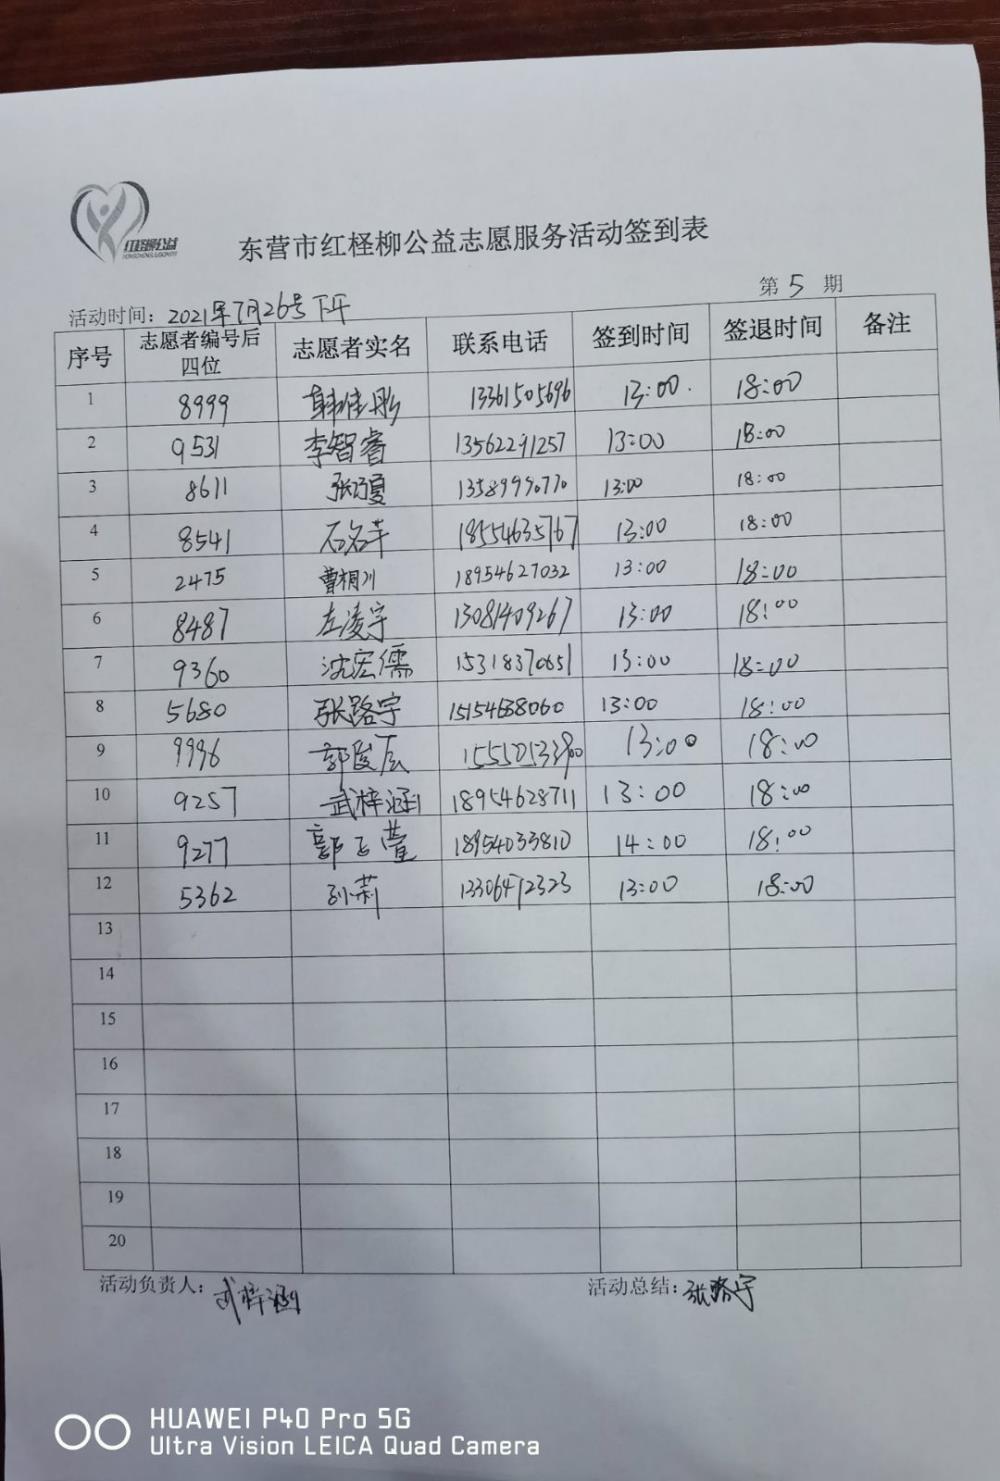 红柽柳公益
东营市红柽柳公益志愿服务活动签到表
第 5 期
活动时间：2021年7月26号下午
序号 志愿者编号后四位 志愿者实名 联系电话 签到时间 签退时间 备注
1 8999 韩佳彤 13361505696 13:00. 18:00
2 9531 李智睿 13562291257 13:00 18:00
3 8611 张巧夏 13589990770 13:00 18:00
4 8541 石名芊 18554635767 13:00 18:00
5 2475 曹桐川 18954627032 13:00 18:00
6 8487 左凌宇 13081409267 13:00 18:00
7 9360 沈宏儒 15318370651 13:00 18:00
8 5680 张路宇 15154638060 13:00 18:00
9 9996 郭俊辰 13:00 18:00
10 9257 武梓涵 18954628711 13:00 18:00
11 9277 郭子萱 18954033810 14:00 18:00
12 5362 孙莉 13306472323 13:00 18:00
13
14
15
16
17
18
19
20
活动负责人：武梓涵 活动总结：张路宇
HUAWEI P40 Pro 5G
Ultra Vision LEICA Quad Camera